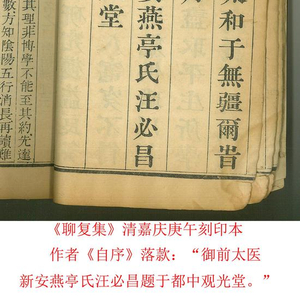 和于無疆爾旹
燕亭氏汪必昌
堂
其理非博學不能至其約先達
數方知陰陽五行消長再續
《聊复集》清嘉庆庚午刻印本
作者《自序》落款:“御前太医
新安燕亭氏汪必昌题于都中观光堂。”